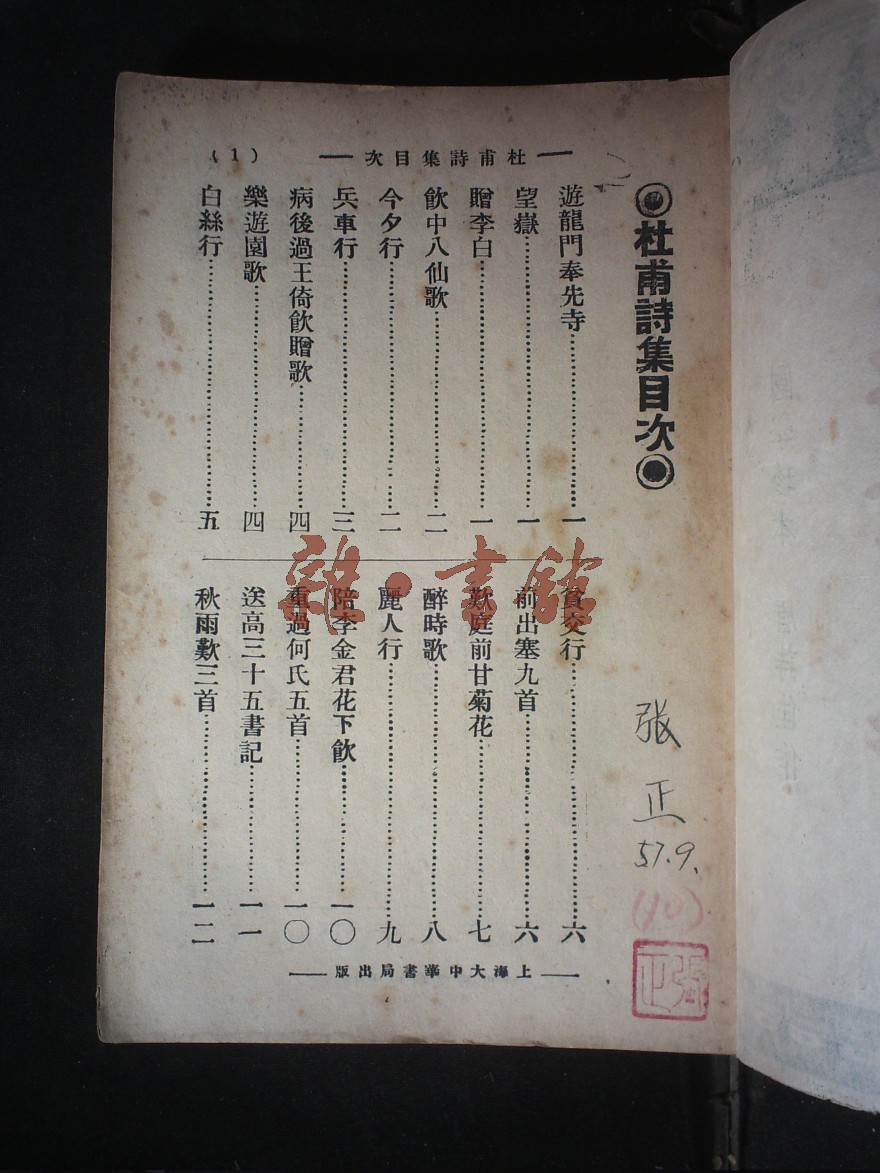 杜甫詩集目次
杜甫詩集目次
(1)
遊龍門奉先寺…一
望嶽…一
贈李白…一
飲中八仙歌…二
今夕行…二
兵車行…三
病後過王倚飲贈歌…四
樂遊園歌…四
白絲行…五
貧交行…六
前出塞九首…六
歎庭前甘菊花…七
醉時歌…八
麗人行…九
陪李金君花下飲…一〇
重過何氏五首…一〇
送高三十五書記…一一
秋雨歎三首…一二
上海大中華書局出版
张正
57.9.
(40)
張正
雜·書館